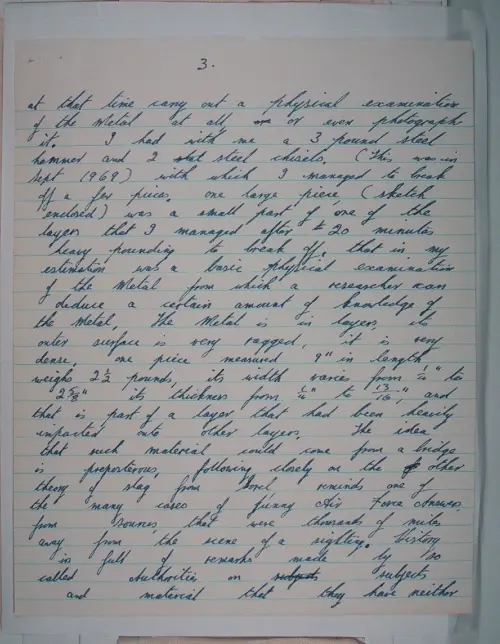 3.
at that time carry out a physical examination
of the Metal at all or or even photograph
it. I had with me a 3 pound steel
hammer and 2 steel chisels. (This was in
Sept 1969) with which I managed to break
off a few pieces. one large piece, (sketch
enclosed) was a small part of one of the
layers that I managed after 20 minutes
heavy pounding to break off. that in my
estimation was a basic physical examination
of the Metal from which a researcher can
deduce a certain amount of knowledge of
the Metal. The Metal is in layers, its
outer surface is very ragged, it is very
dense. one piece measured 9" in length
weighs 2½ pounds, its width varies from to
2 5/8" its thickness from ¼" to 13/16", and
that is part of a layer that had been heavily
impacted onto other layers. The idea
that such material could come from a bridge
is preposterous, following closely on the other
theory of slag from reminds one of
the many cases of funny Air Force Answers
from sources, that were thousands of miles
away from the scene of a sighting. history
is full of remarks made by so
called Authorities on subjects subjects
and material that they have neither